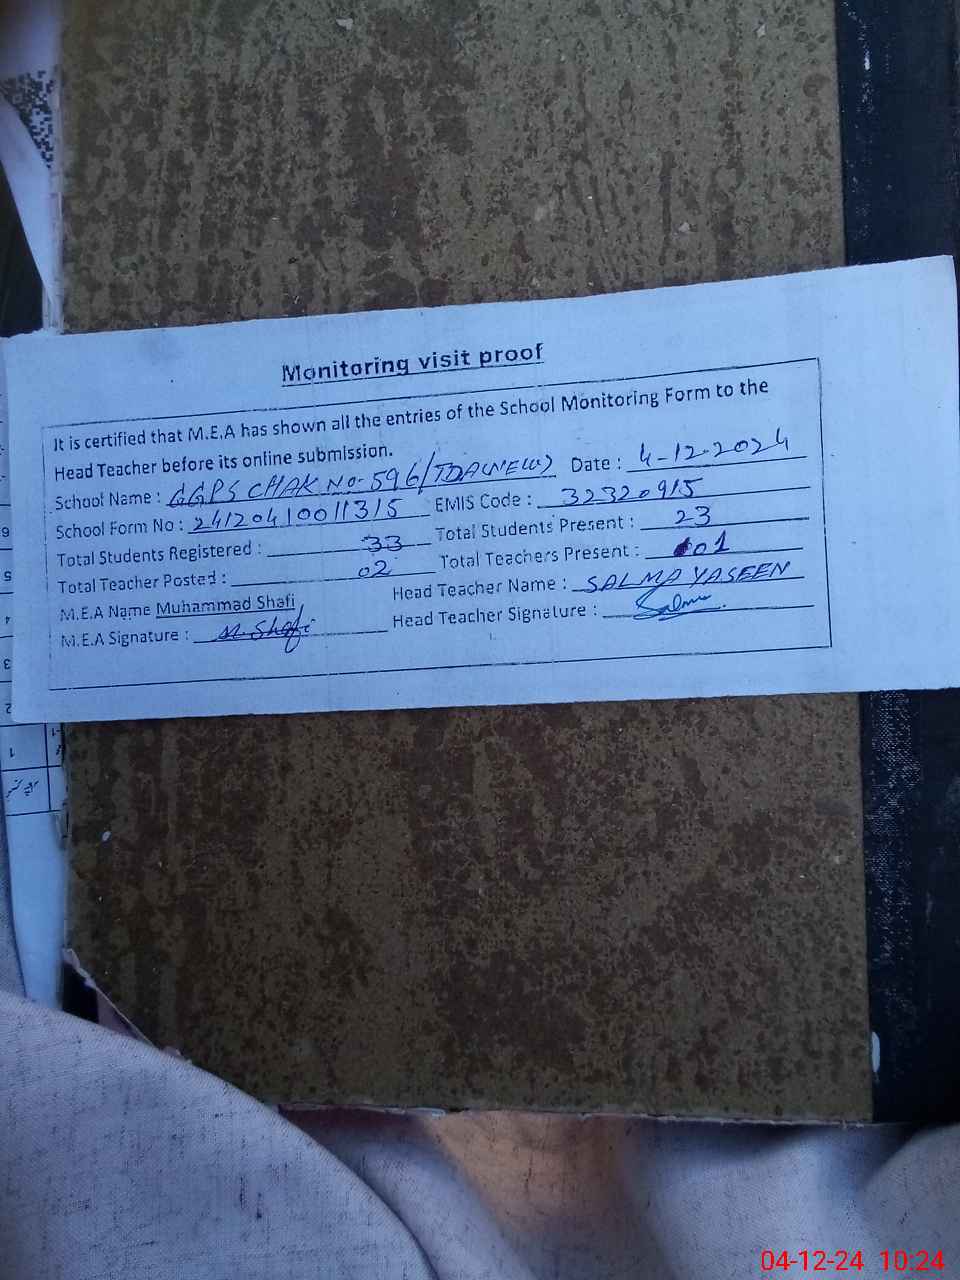 Monitoring visit proof
It is certified that M.E.A has shown all the entries of the School Monitoring Form to the
Head Teacher before its online submission.
School Name : GGPS CHAK No-596/TDA(NEW) Date : 4-12-2024
School Form No : 24120410011315 EMIS Code : 32320915
Total Students Registered : 33 Total Students Present : 23
Total Teacher Posted : 02 Total Teachers Present : 01
M.E.A Name Muhammad Shafi Head Teacher Name : SALMA YASEEN
M.E.A Signature : M. Shafi Head Teacher Signature : Salma
6
5
4
3
2
1
04-12-24 10:24